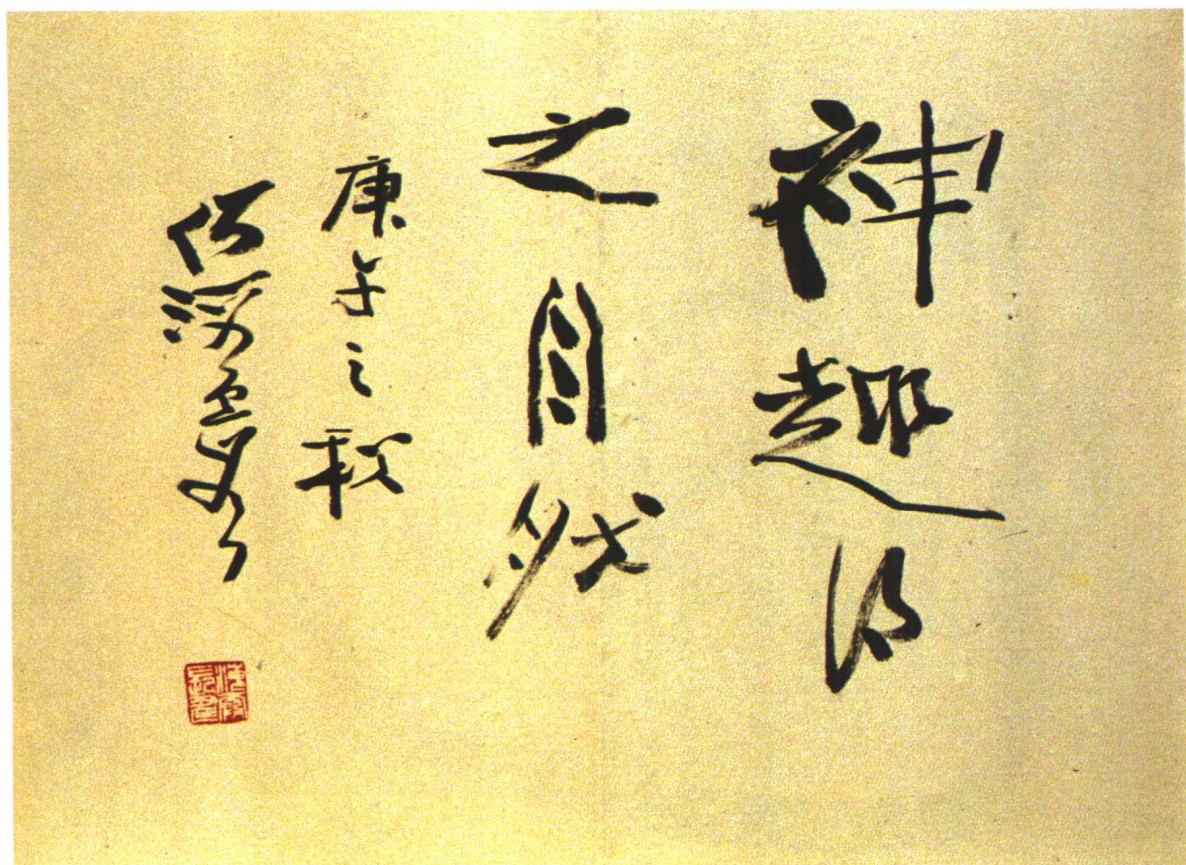 神趣得
之自然
庚午之秋
何海霞书